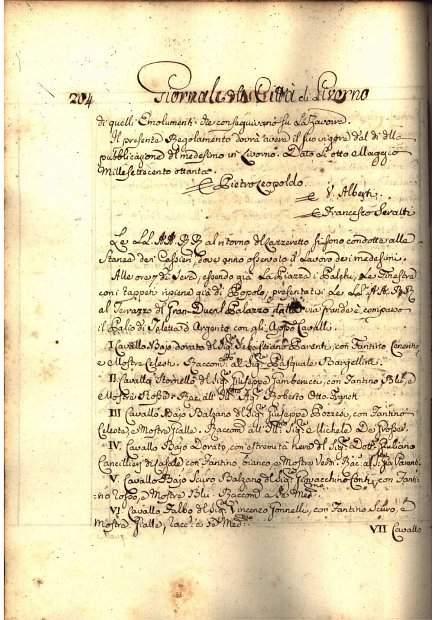 204 Giornale della Città di Livorno
di quelli Emolumenti che conseguivano su La Zavorra.
Il presente Regolamento dovrà avere il suo vigore dal dì della
pubblicazione del medesimo in Livorno. Dato lì otto Maggio
Mille settecento ottanta.
Pietro Leopoldo.
V. Alberti.
Francesco Seratti
Le LL. AA. RR. al ritorno del Lazzeretto furono condotte alle
Stanze dei Cassieri, ove
il Lavoro dei medesimi.
Alle ore di Sera, essendo già La Piazza, i Palchi, Le Finestre
con i tappeti ripiene già di Popolo; presentatisi Le LL. AA. RR.
al Terrazzo del Gran-Ducal Palazzo dalla via Grande è comparso
il Palio di Teletta d'Argento con gli Cavalli.
I Cavallo Bajo dorato del Sig.r Sebastiano Parenti, con Fantino
e Mostre Celesti. Raccom. al Sig.r Pasquale Bargellini.
II Cavallo Stornello del Sig.r Giuseppe Tamberucci, con Fantino Blù, e
Mostre Rosse. Rac. all' Ill. Sig.r Roberto Otto Franck
III Cavallo Bajo Balzano del Sig.r Giuseppe Borzesi, con Fantino
Celeste, e Mostre Gialle. Raccom. all' Ill. Sig.r Michele
IV. Cavallo Bajo Dorato, con estremità Nere del Sig.r Dott. Giuliano
Cancellieri con Fantino bianco, e Mostre Verdi.
V. Cavallo Bajo Scuro Balzano del Sig.r Giovacchino Conti, con Fanti-
no Rosso, e Mostre Blù. Raccom. a Se Med.mo
VI Cavallo Falbo del Sig.r Vincenzo Tonnelli, con Fantino Scuro, e
Mostre Gialle, Racc. a Se Med.mo
VII Cavallo